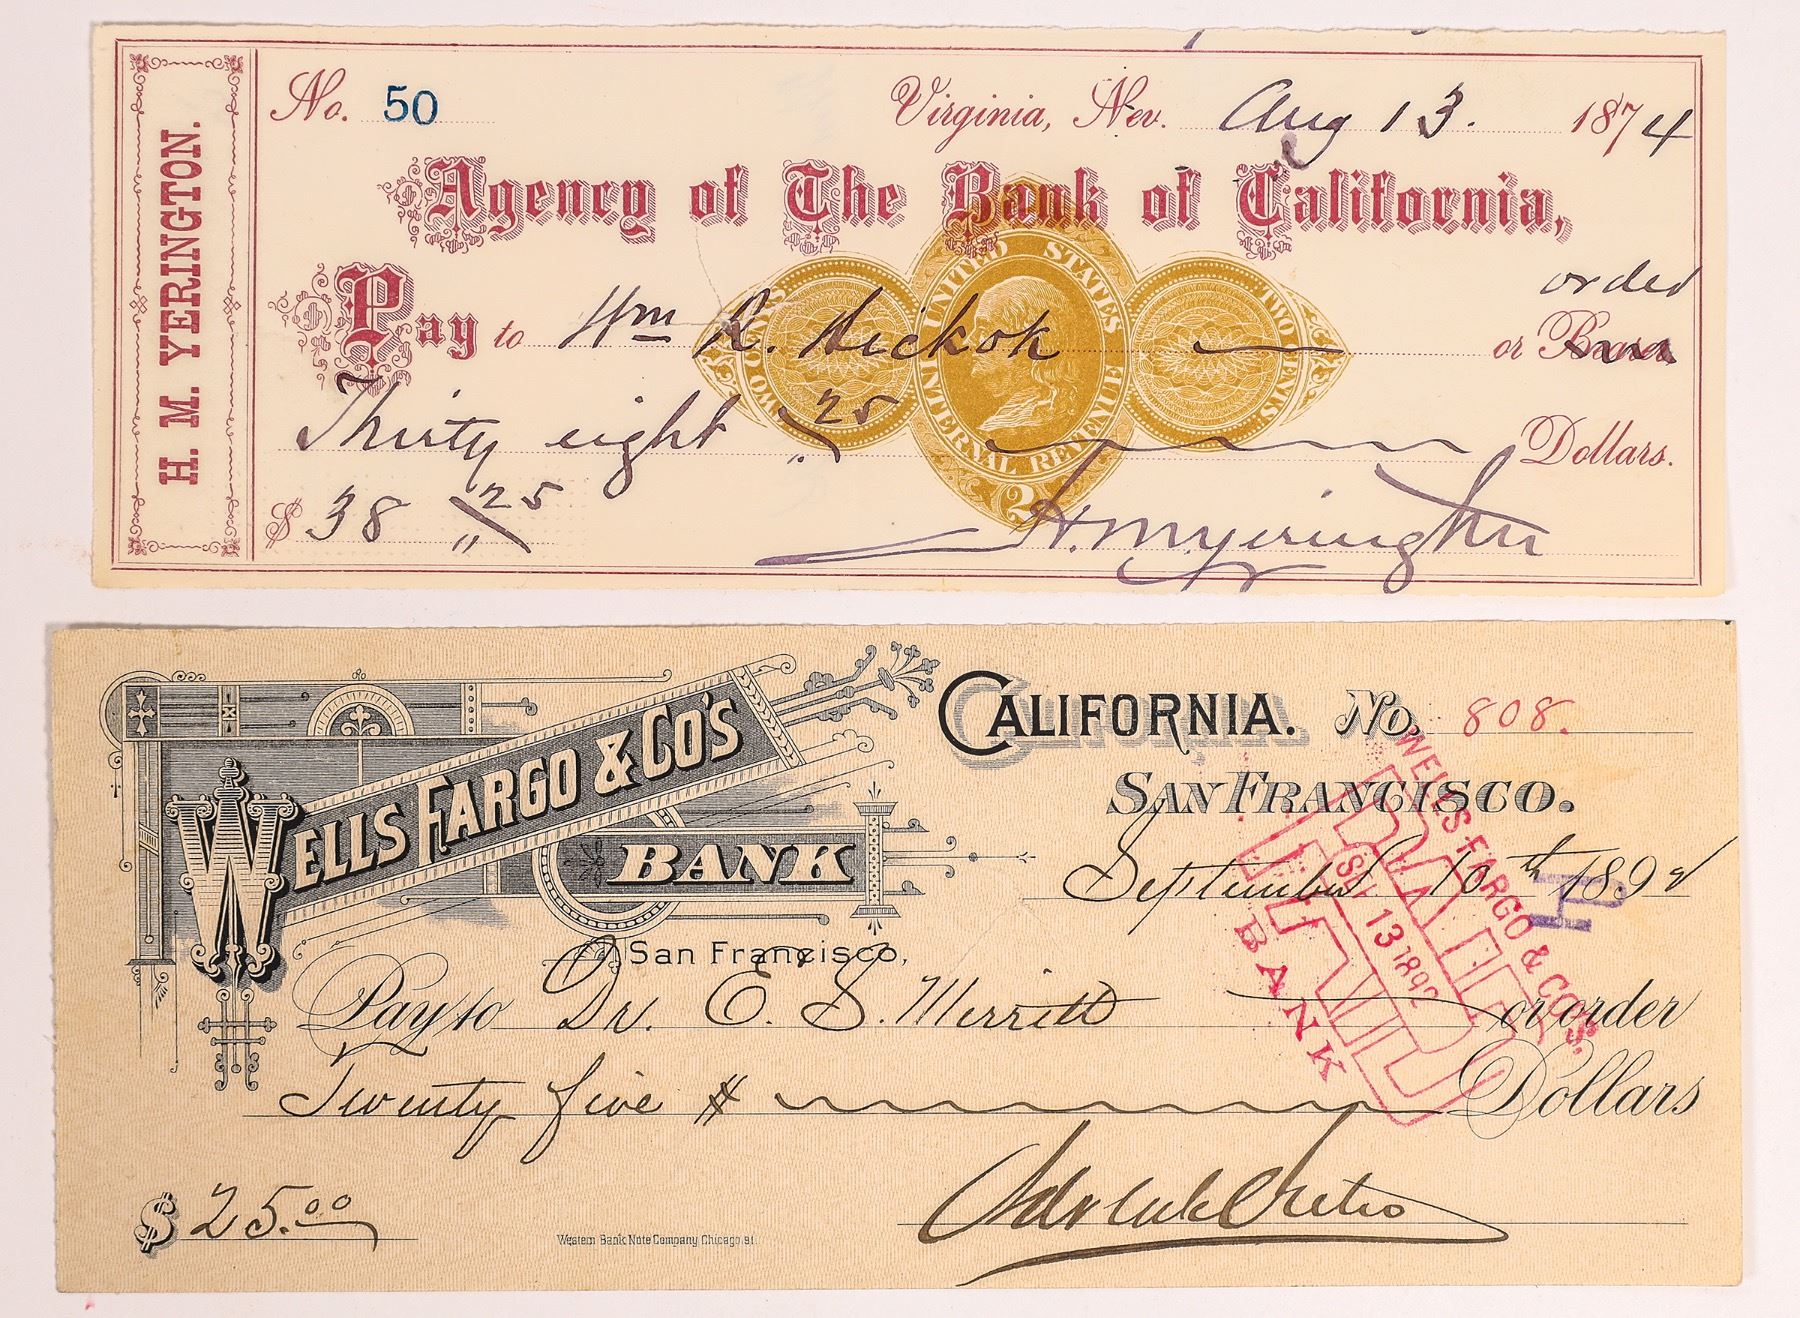 H. M. YERINGTON.
No. 50
Virginia, Nev. Aug 13. 1874
Agency of The Bank of California,
Pay to Wm R. Hickok order
or Bearer
Thirty eight 25 Dollars.
$ 38 " 25
H. M. Yerington
UNITED STATES
INTERNAL REVENUE
TWO CENTS
TWO CENTS
2
WELLS FARGO & CO'S
BANK
CALIFORNIA. No. 808.
SAN FRANCISCO.
September 10th 1892
San Francisco,
Pay to Dr. E. S. Merritt or order
Twenty five $ Dollars
$ 25.00
Western Bank Note Company, Chicago. 91.
WELLS FARGO & CO'S.
PAID
SEP 13 1892
BANK